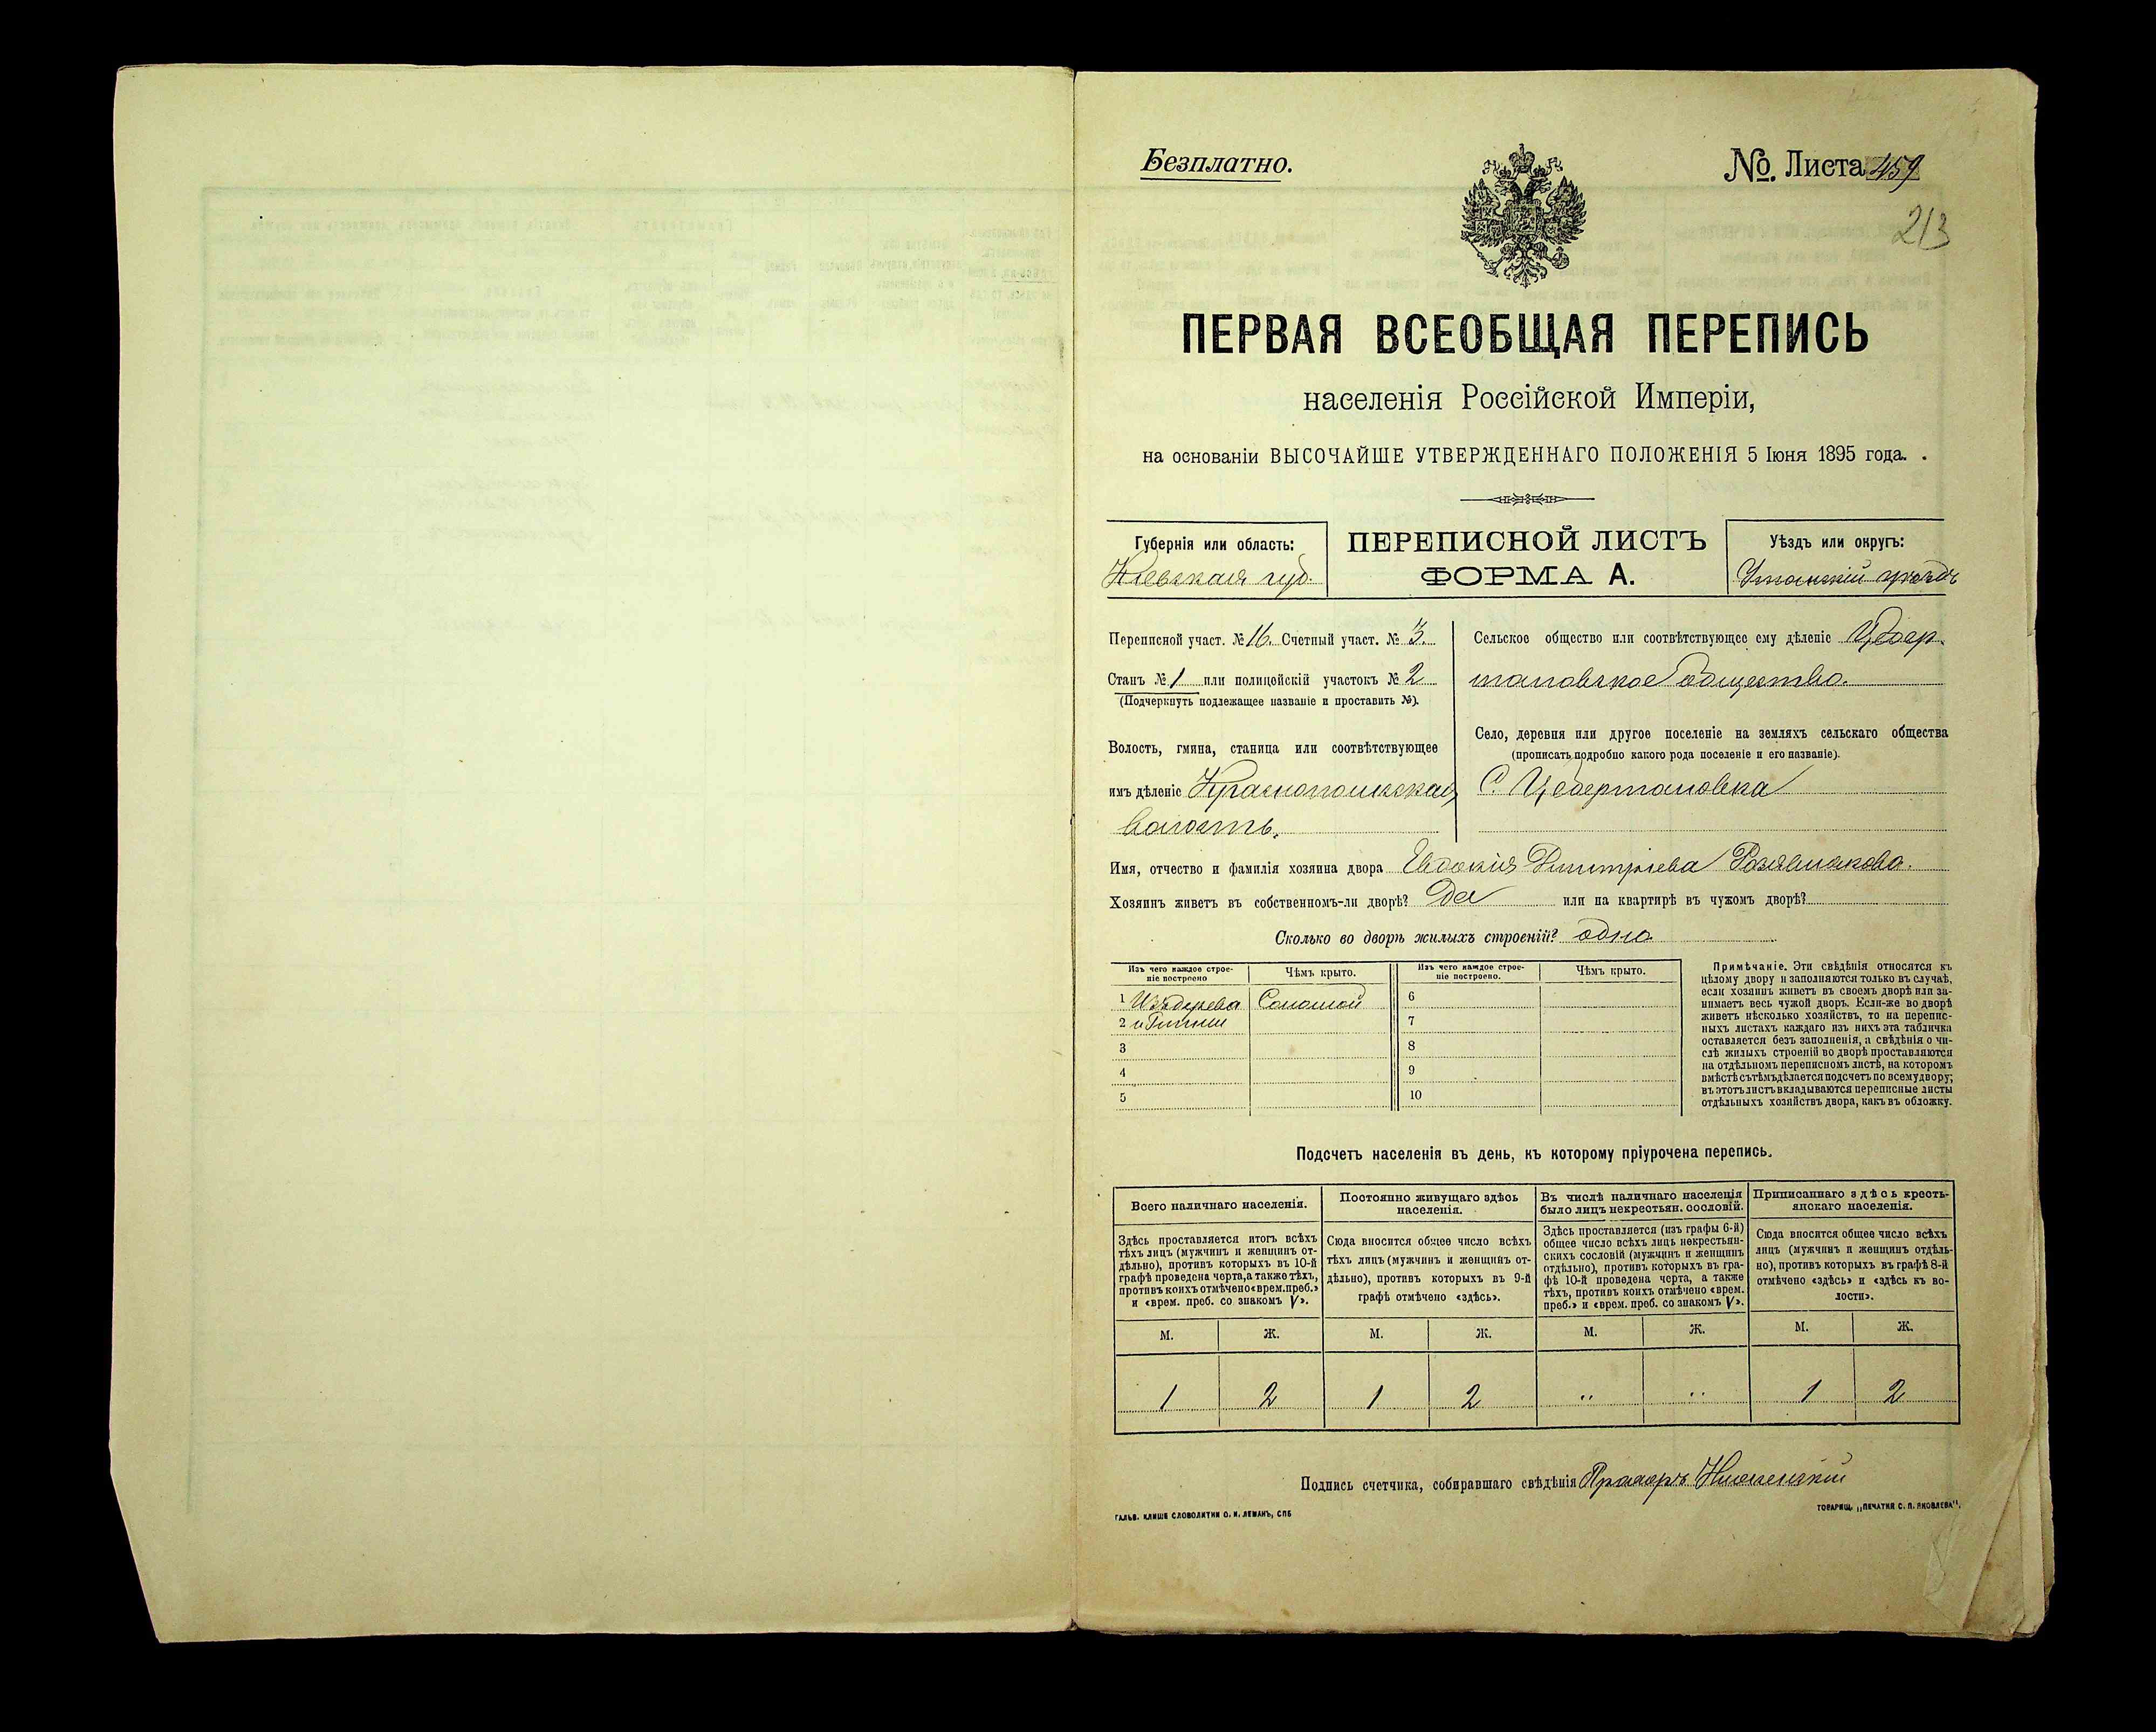 Безплатно.
№ Листа 459
213
ПЕРВАЯ ВСЕОБЩАЯ ПЕРЕПИСЬ
населенія Россійской Имперіи,
на основаніи ВЫСОЧАЙШЕ УТВЕРЖДЕННАГО ПОЛОЖЕНІЯ 5 Іюня 1895 года.
Губернія или область:
Кіевская губ.
ПЕРЕПИСНОЙ ЛИСТЪ
ФОРМА А.
Уѣздъ или округъ:
Уманскій уѣздъ
Переписной участ. № 16. Счетный участ. № 3.
Станъ № 1 или полицейскій участокъ № 2
(Подчеркнуть подлежащее названіе и проставить №).
Волость, гмина, станица или соотвѣтствующее
имъ дѣленіе Краснопольская
волость.
Сельское общество или соотвѣтствующее ему дѣленіе Цебер-
мановское общество.
Село, деревня или другое поселеніе на земляхъ сельскаго общества
(прописать подробно какого рода поселеніе и его названіе).
С. Цебермановка
Имя, отчество и фамилія хозяина двора Евдокія Дмитріева
Хозяинъ живетъ въ собственномъ-ли дворѣ? Да или на квартирѣ въ чужомъ дворѣ?
Сколько во дворѣ жилыхъ строеній? одно
Изъ чего каждое строе-
ніе построено
Чѣмъ крыто.
1 Изъ дерева Соломой
2 и Глины
3
4
5
Изъ чего каждое строе-
ніе построено.
Чѣмъ крыто.
6
7
8
9
10
Примѣчаніе. Эти свѣдѣнія относятся къ
цѣлому двору и заполняются только въ случаѣ,
если хозяинъ живетъ въ своемъ дворѣ или за-
нимаетъ весь чужой дворъ. Если-же во дворѣ
живетъ нѣсколько хозяйствъ, то на перепис-
ныхъ листахъ каждаго изъ нихъ эта табличка
оставляется безъ заполненія, а свѣдѣнія о чи-
слѣ жилыхъ строеній во дворѣ проставляются
на отдѣльномъ переписномъ листѣ, на которомъ
вмѣстѣ съ тѣмъ дѣлается подсчетъ по всему двору;
въ этотъ листъ вкладываются переписные листы
отдѣльныхъ хозяйствъ двора, какъ въ обложку.
Подсчетъ населенія въ день, къ которому пріурочена перепись.
Всего наличнаго населенія.
Здѣсь проставляется итогъ всѣхъ
тѣхъ лицъ (мужчинъ и женщинъ от-
дѣльно), противъ которыхъ въ 10-й
графѣ проведена черта, а также тѣхъ,
противъ коихъ отмѣчено «врем. преб.»
и «врем. преб. со знакомъ V».
Постоянно живущаго здѣсь
населенія.
Сюда вносится общее число всѣхъ
тѣхъ лицъ (мужчинъ и женщинъ от-
дѣльно), противъ которыхъ въ 9-й
графѣ отмѣчено «здѣсь».
Въ числѣ наличнаго населенія
было лицъ некрестьян. сословій.
Здѣсь проставляется (изъ графы 6-й)
общее число всѣхъ лицъ некрестьян-
скихъ сословій (мужчинъ и женщинъ
отдѣльно), противъ которыхъ въ гра-
фѣ 10-й проведена черта, а также
тѣхъ, противъ коихъ отмѣчено «врем.
преб.» и «врем. преб. со знакомъ V».
Приписаннаго здѣсь кресть-
янскаго населенія.
Сюда вносится общее число всѣхъ
лицъ (мужчинъ и женщинъ отдѣль-
но), противъ которыхъ въ графѣ 8-й
отмѣчено «здѣсь» и «здѣсь къ во-
лости».
М. Ж. М. Ж. М. Ж. М. Ж.
1 2 1 2 " " 1 2
Подпись счетчика, собиравшаго свѣдѣнія
ГАЛЬВ. КЛИШЕ СЛОВОЛИТНИ О. И. ЛЕМАНЪ, СПБ
ТОВАРИЩ. „ПЕЧАТНЯ С. П. ЯКОВЛЕВА".